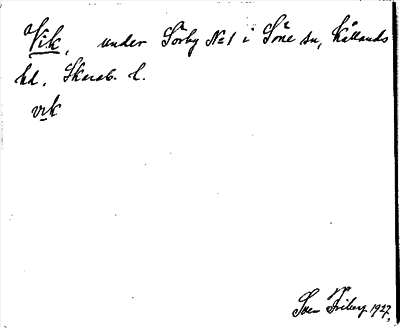 Vik, under Sörby No 1 i Söne sn, Kållands
hd. Skarab. l.
vik
Sven Friberg 1927.